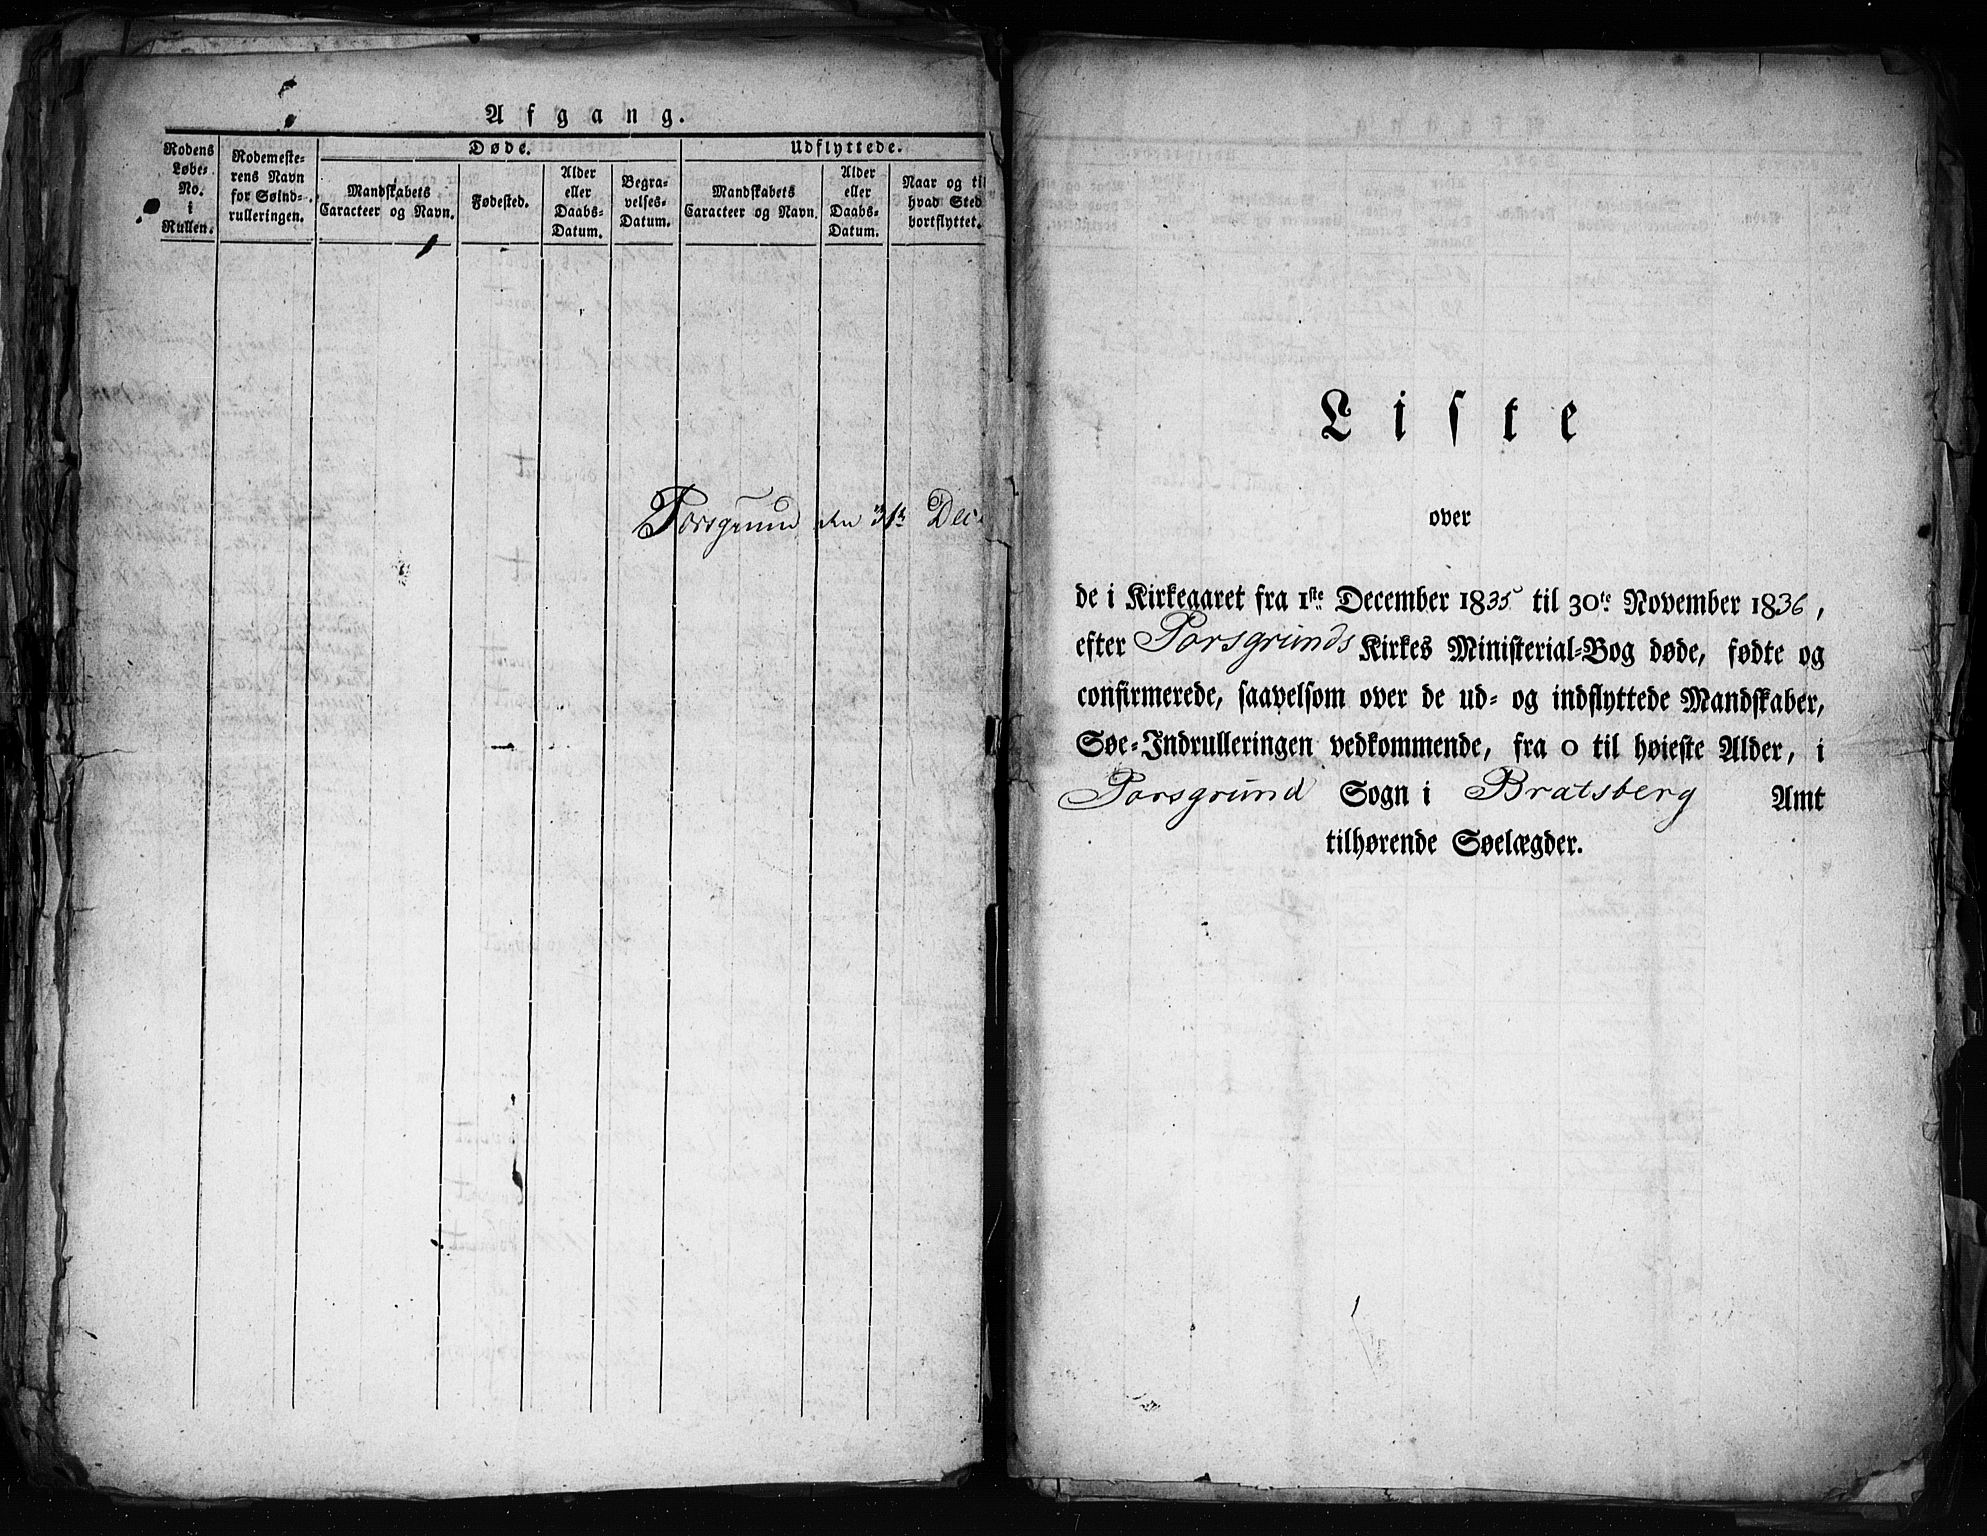 Afgang.
Døde.
Udflyttede.
Rodens
Løbe-
No.
i
Rullen.
Rodemeste-
rens Navn
for Søind-
rulleringen.
Mandskabets
Caracteer og Navn.
Fødested.
Alder
eller
Daabs-
Datum.
Begra-
velses-
Datum.
Mandskabets
Caracteer og Navn.
Alder
eller
Daabs-
Datum.
Naar og til
hvad Sted
bortflyttet.
Porsgrund den 31te Dec
Liste
over
de i Kirkeaaret fra 1ste December 1835 til 30te November 1836,
efter Porsgrunds Kirkes Ministerial-Bog døde, fødte og
confirmerede, saavelsom over de ud- og indflyttede Mandskaber,
Søe-Indrulleringen vedkommende, fra 0 til høieste Alder, i
Porsgrund Sogn i Bratsberg Amt
tilhørende Søelægder.